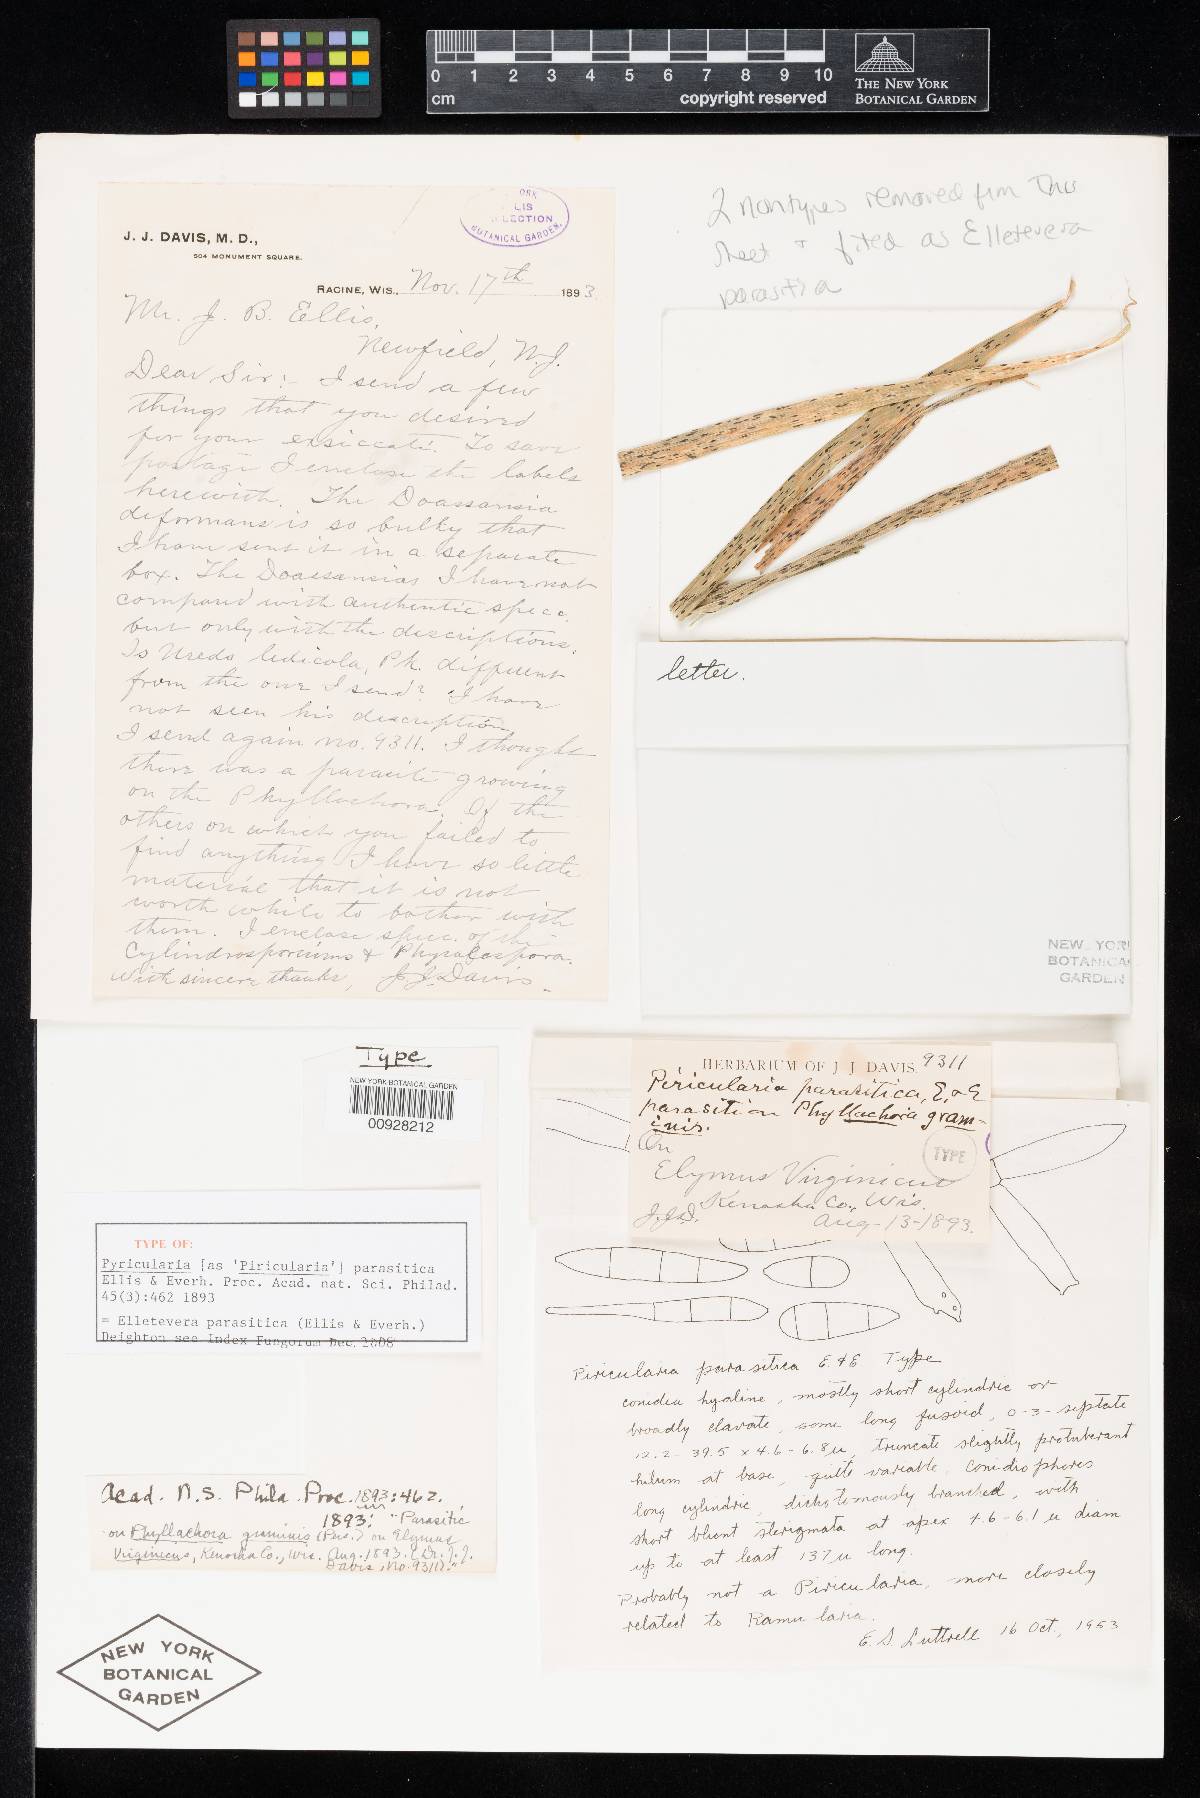 0 1 2 3 4 5 6 7 8 9 10
cm
copyright reserved
THE NEW YORK
BOTANICAL GARDEN
2 nontypes removed from this
sheet + filed as Elletevera
parasitica
ORK
LIS
LECTION
BOTANICAL GARDEN.
J. J. DAVIS, M. D.,
504 MONUMENT SQUARE.
RACINE, WIS., Nov. 17th 1893.
Mr. J. B. Ellis,
Newfield, N.J.
Dear Sir:- I send a few
things that you desired
for your exsiccati. To save
postage I enclose the labels
herewith. The Doassansia
deformans is so bulky that
I have sent it in a separate
box. The Doassansias I have not
compared with authentic specc.
but only with the descriptions.
Is Uredo ledicola, Pk. different
from the one I send? I have
not seen his description.
I send again no. 9311. I thought
there was a parasite growing
on the Phyllachora. Of the
others on which you failed to
find anything I have so little
material that it is not
worth while to bother with
them. I enclose spec. of the
Cylindrosporiums & Physalospora.
With sincere thanks, J. J. Davis.
letter.
NEW YORK
BOTANICAL
GARDEN
Type
NEW YORK BOTANICAL GARDEN
00928212
TYPE OF:
Pyricularia [as 'Piricularia'] parasitica
Ellis & Everh. Proc. Acad. nat. Sci. Philad.
45(3):462 1893
= Elletevera parasitica (Ellis & Everh.)
Deighton see Index Fungorum Dec. 2008
Acad. N.S. Phila. Proc. 1893:462,
in
1893: "Parasitic
on Phyllachora graminis (Pers.) on Elymus
Virginicus, Kenosha Co., Wis. Aug. 1893. (Dr. J. J.
Davis, No. 9311)."
HERBARIUM OF J. J. DAVIS. 9311
Piricularia parasitica, E. & E
parasitic on Phyllachora gram-
inis.
On
TYPE
Elymus Virginicus
Kenosha Co., Wis.
J.J.D. Aug-13-1893.
Piricularia parasitica E. & E Type
conidia hyaline, mostly short cylindric or
broadly clavate, some long fusoid, 0-3-septate
12.2-39.5 x 4.6-6.8 u, truncate slightly protuberant
hilum at base, quite variable. Conidiophores
long cylindric, dichotomously branched, with
short blunt sterigmata at apex 4.6-6.1 u diam
up to at least 137 u long.
Probably not a Piricularia, more closely
related to Ramularia.
E. S. Luttrell 16 Oct., 1953
NEW YORK
BOTANICAL
GARDEN